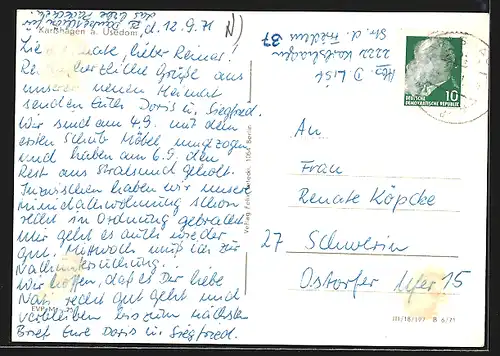 Karlshagen a. Usedom, d. 12.9.71
Liebe Renate, lieber Reimar!
Recht herzliche Grüße aus
unserer neuen Heimat
senden Euch Doris u. Siegfried.
Wir sind am 4.9. mit dem
ersten Schub Möbel umgezogen
und haben am 6.9. den
Rest aus Stralsund geholt.
Inzwischen haben wir unsere
schon
recht in Ordnung gebracht.
Mir geht es auch wieder
gut. Mittwoch muß ich zur
Nachuntersuchung..
Wir hoffen, daß es Dir liebe
Nati recht gut geht und
verbleiben bis zum nächsten
Brief Eure Doris u. Siegfried.
Abs. D. List
2222 Karlshagen
Str. d. Friedens 37
DEUTSCHE
DEMOKRATISCHE REPUBLIK
10
An
Frau
Renate Köpcke
27 Schwerin
Ostorfer Ufer 15
1054 Berlin
III/18/197 B 6/71